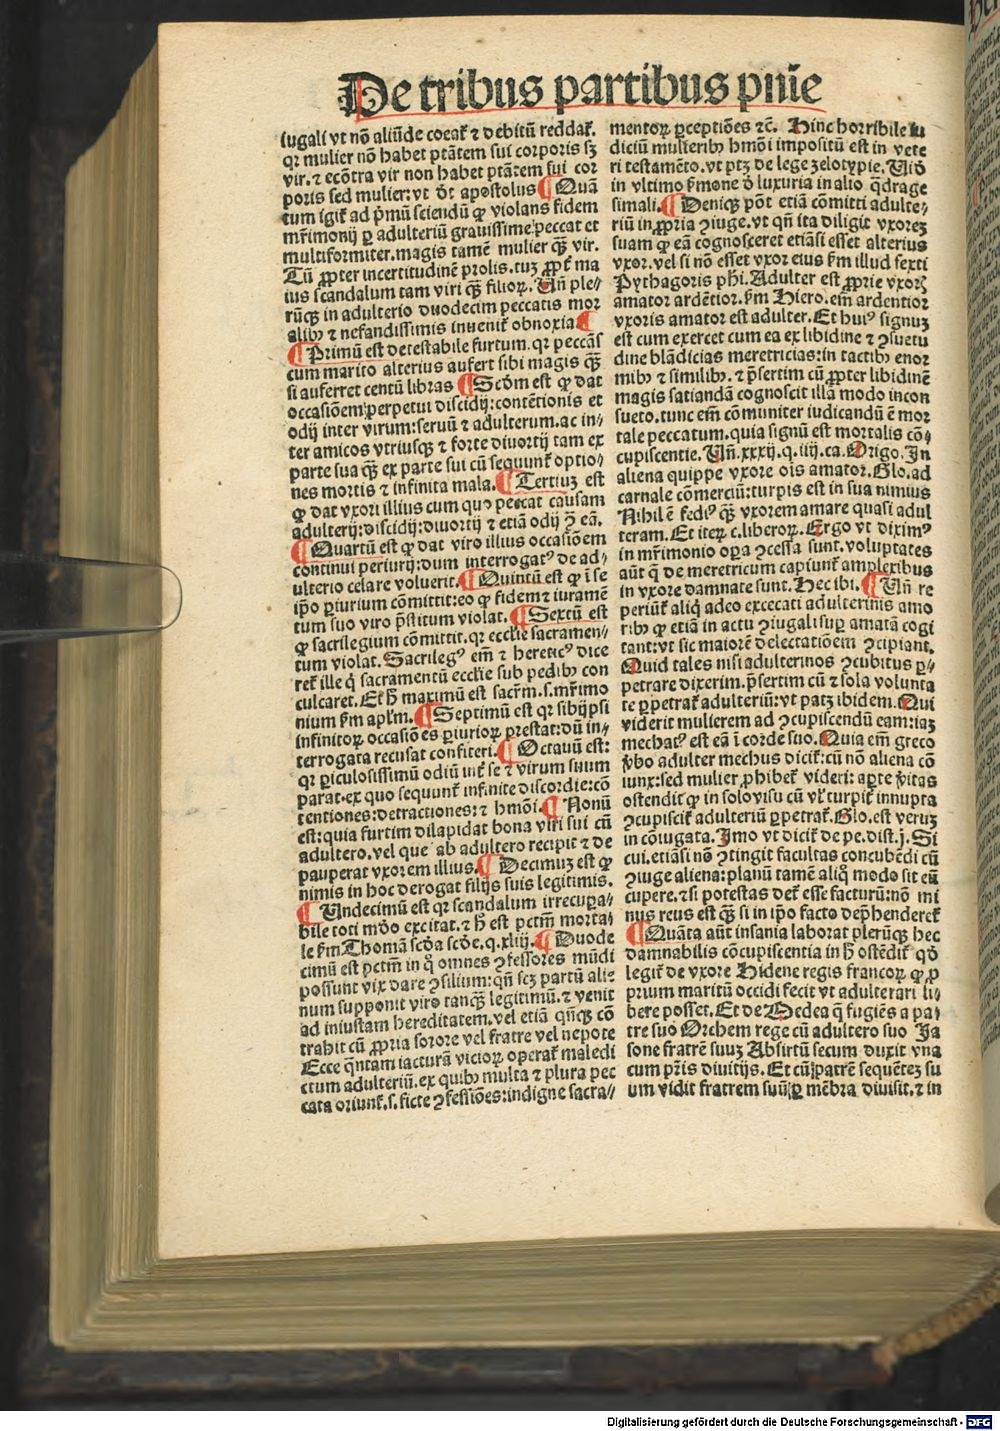 De tribus partibus pnīe
iugali vt nō aliūde coeat̄ ⁊ debitū reddat̄.
qꝛ mulier nō habet ptātem sui corporis sꝫ
vir. ⁊ ecōtra vir non habet ptātem sui cor
poris sed mulier: vt dt̄ apostolus ¶ Quā
tum igit̄ ad pͥmū sciendū ꝙ violans fidem
mr̄imonij ꝑ adulteriū grauissime peccat et
multiformiter. magis tamē mulier qꝫ̄ vir.
Tū ꝓpter incertitudinē prolis. tuꝫ ꝓpt̄ ma
ius scandalum tam viri qꝫ̄ filioꝝ. Vn̄ ple⸗
rūqꝫ in adulterio duodecim peccatis mor
alibꝫ ⁊ nefandissimis inuenit̄ obnoxia ¶
¶ Primū est detestabile furtum. qꝛ peccās
cum marito alterius aufert sibi magis qꝫ̄
si auferret centū libras ¶ Scdm̄ est ꝙ dat
occasiōem perpetui discidij: contētionis et
odij inter virum: seruū ⁊ adulterum. ac in⸗
ter amicos vtriusqꝫ ⁊ forte diuortij tam ex
parte sua qꝫ̄ ex parte sui cū sequunt̄ optio⸗
nes mortis ⁊ infinita mala. ¶ Tertiuꝫ est
ꝙ dat vxori illius cum quo peccat causam
adulterij: discidij: diuortij ⁊ etiā odij ꝯ̄ eā.
¶ Quartū est ꝙ dat viro illius occasiōem
continui periurij: dum interrogatꝰ de ad⸗
ulterio celare voluerit. ¶ Quintū est ꝙ ī se
ip̄o ꝑiurium cōmittit: eo ꝙ fidem ⁊ iuramē
tum suo viro p̄stitum violat. ¶ Sextū est
ꝙ sacrilegium cōmittit. qꝛ eccl̄ie sacramen⸗
tum violat. Sacrilegꝰ em̄ ⁊ hereticꝰ dice
ret̄ ille qͥ sacramentū eccl̄ie sub pedibꝫ con
culcaret. Et h̄ maximū est sacr̄m. s. mr̄imo
nium ẜm apl̄m. ¶ Septimū est qꝛ sibijpsi
infinitoꝝ occasiōes ꝑiurioꝝ prestat: dū in⸗
terrogata recusat confiteri. ¶ Octauū est:
qꝛ ꝑiculosissimū odiū int̄ se ⁊ virum suum
parat. ex quo sequunt̄ infinite discordie: cō
tentiones: detractiones: ⁊ hmōi. ¶ Nonū
est: quia furtim dilapidat bona viri sui cū
adultero. vel que ab adultero recipit ⁊ de
pauperat vxorem illius. ¶ Decimuꝫ est ꝙ
nimis in hoc derogat filijs suis legitimis.
¶ Undecimū est qꝛ scandalum irrecupa⸗
bile toti mūdo excitat. ⁊ h̄ est pctm̄ morta⸗
le ẜm Thomā scd̄a scd̄e. q. xliij. ¶ Duode
cimū est pctm̄ in qͦ omnes ꝯfessores mūdi
possunt vix dare ꝯsilium: qn̄ scꝫ partū alie
num supponit viro tanqꝫ̄ legitimū. ⁊ venit
ad iniustam hereditatem. vel etiā qn̄qꝫ cō
trahit cū ꝓpria sorore vel fratre vel nepote
Ecce qͣntam iacturā vicioꝝ operat̄ maledi
ctum adulteriū. ex quibꝫ multa ⁊ plura pec
cata oriunt̄. s. ficte ꝯfessiōes: indigne sacra⸗
mentoꝝ ꝑceptiōes ⁊c̄. Hinc horribile iu
diciū mulieribꝫ hmōi impositū est in vete
ri testamēto. vt ptꝫ de lege zelotypie. Uid̄
in vltimo ẜmone d̄ luxuria in alio qͣdrage
simali. ¶ Deniqꝫ pōt etiā cōmitti adulte⸗
riū in ꝓpria ꝯiuge. vt qn̄ ita diligit vxoreꝫ
suam ꝙ eā cognosceret etiāsi esset alterius
vxor. vel si nō esset vxor eius ẜm illud sexti
Pythagoris phi̅. Adulter est ꝓprie vxoris
amator ardētior. ẜm Hiero. em̄ ardentior
vxoris amator est adulter. Et huiꝰ signuꝫ
est cum exercet cum ea ex libidine ⁊ ꝯsuetu
dine blādicias meretricias: in tactibꝫ enor
mibꝫ ⁊ similibꝫ. ⁊ p̄sertim cū ꝓpter libidinē
magis satiandā cognoscit illā modo incon
sueto. tunc em̄ cōmuniter iudicandū ē mor
tale peccatum. quia signū est mortalis cō⸗
cupiscentie. Vn̄. xxxij. q. iiij. ca. Origo. In
aliena quippe vxore oīs amator. Glo. ad
carnale cōmerciū: turpis est in sua nimius
Nihil ē fediꝰ qꝫ̄ vxorem amare quasi adul
teram. Et iteꝝ c. liberoꝝ. Ergo vt diximꝰ
in mr̄imonio oꝑa ꝯcessa sunt. voluptates
aūt q̄ de meretricum capiunt̄ amplexibus
in vxore damnate sunt. Hec ibi. ¶ Vn̄ re
periūt̄ aliqͥ adeo excecati adulterinis amo
ribꝫ ꝙ etiā in actu ꝯiugali suꝑ amatā cogi
tant: vt sic maiorē delectatiōem ꝯcipiant.
Quid tales nisi adulterinos ꝯcubitus ꝑ⸗
petrare dixerim. p̄sertim cū ⁊ sola volunta
te ꝑpetrat̄ adulteriū: vt patꝫ ibidem. Qui
viderit mulierem ad ꝯcupiscendū eam: iaꝫ
mechatꝰ est eā ī corde suo. Quia em̄ greco
ꝟbo adulter mechus dicit̄: cū nō aliena cō
iunx: sed mulier ꝓhibet̄ videri: aꝑte ꝟitas
ostendit ꝙ in solo visu cū vl̄ turpit̄ innupta
ꝯcupiscit̄ adulteriū ꝑpetrat̄. Glo. est veruꝫ
in cōiugata. Imo vt dicit̄ de pe. dist. j. Si
cui. etiāsi nō ꝯtingit facultas concubēdi cū
ꝯiuge aliena: planū tamē aliqͦ modo sit eū
cupere. ⁊ si potestas det̄ esse facturū: nō mi
nus reus est qꝫ̄ si in ip̄o facto dep̄henderet̄
¶ Quāta aūt insania laborat plerūqꝫ hec
damnabilis cōcupiscentia in h̄ ostēdit̄ qd̄
legit̄ de vxore Hidene regis francoꝝ ꝙ ꝓ
prium maritū occidi fecit vt adulterari li⸗
bere posset. Et de Medea q̄ fugiēs a pa⸗
tre suo Orchem rege cū adultero suo Ja
sone fratrē suuꝫ Absirtū secum duxit vna
cum pr̄is diuitijs. Et cū patrē sequēteꝫ su
um vidit fratrem suū ꝑ mēbra diuisit. ⁊ in
Digitalisierung gefördert durch die Deutsche Forschungsgemeinschaft - DFG